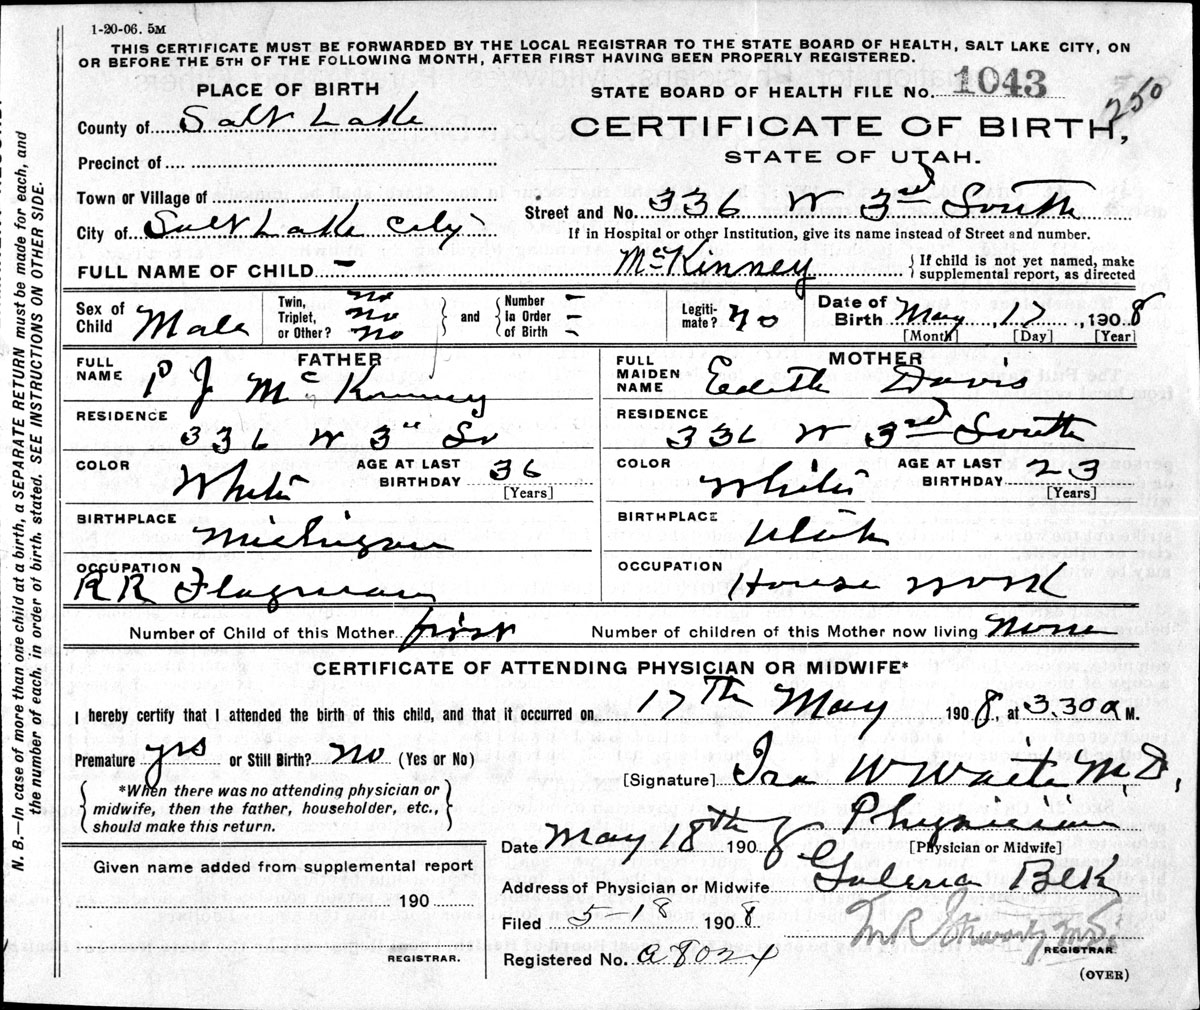 1-20-06. 5M
THIS CERTIFICATE MUST BE FORWARDED BY THE LOCAL REGISTRAR TO THE STATE BOARD OF HEALTH, SALT LAKE CITY, ON
OR BEFORE THE 5TH OF THE FOLLOWING MONTH, AFTER FIRST HAVING BEEN PROPERLY REGISTERED.
PLACE OF BIRTH
STATE BOARD OF HEALTH FILE No. 1043
250
County of Salt Lake
CERTIFICATE OF BIRTH,
STATE OF UTAH.
Precinct of
Town or Village of
Street and No. 336 W 3rd South
City of Salt Lake City
If in Hospital or other Institution, give its name instead of Street and number.
FULL NAME OF CHILD – McKinney
If child is not yet named, make
supplemental report, as directed
Sex of Child Male
Twin, no
Triplet, no
or Other? no
and
Number –
In Order –
of Birth –
Legiti-
mate? no
Date of
Birth May, 17, 1908
[Month] [Day] [Year]
FATHER
FULL NAME P J McKinney
MOTHER
FULL MAIDEN NAME Edith Davis
RESIDENCE
336 W 3rd So
RESIDENCE
336 W 3rd South
COLOR White
AGE AT LAST BIRTHDAY 36
[Years]
COLOR White
AGE AT LAST BIRTHDAY 23
[Years]
BIRTHPLACE Michigan
BIRTHPLACE Utah
OCCUPATION
RR Flagman
OCCUPATION House work
Number of Child of this Mother first
Number of children of this Mother now living none
CERTIFICATE OF ATTENDING PHYSICIAN OR MIDWIFE*
I hereby certify that I attended the birth of this child, and that it occurred on 17th May 1908, at 3.30 a M.
Premature yes or Still Birth? no (Yes or No)
[Signature] Ira W Waite M.D.
*When there was no attending physician or
midwife, then the father, householder, etc.,
should make this return.
Date May 18th 1908 Physician
[Physician or Midwife]
Given name added from supplemental report
190
REGISTRAR.
Address of Physician or Midwife Galena Blk
Filed 5 18 1908
M.D.
REGISTRAR.
Registered No. a8024
(OVER)
N. B.—In case of more than one child at a birth, a SEPARATE RETURN must be made for each, and
the number of each, in order of birth, stated. SEE INSTRUCTIONS ON OTHER SIDE.